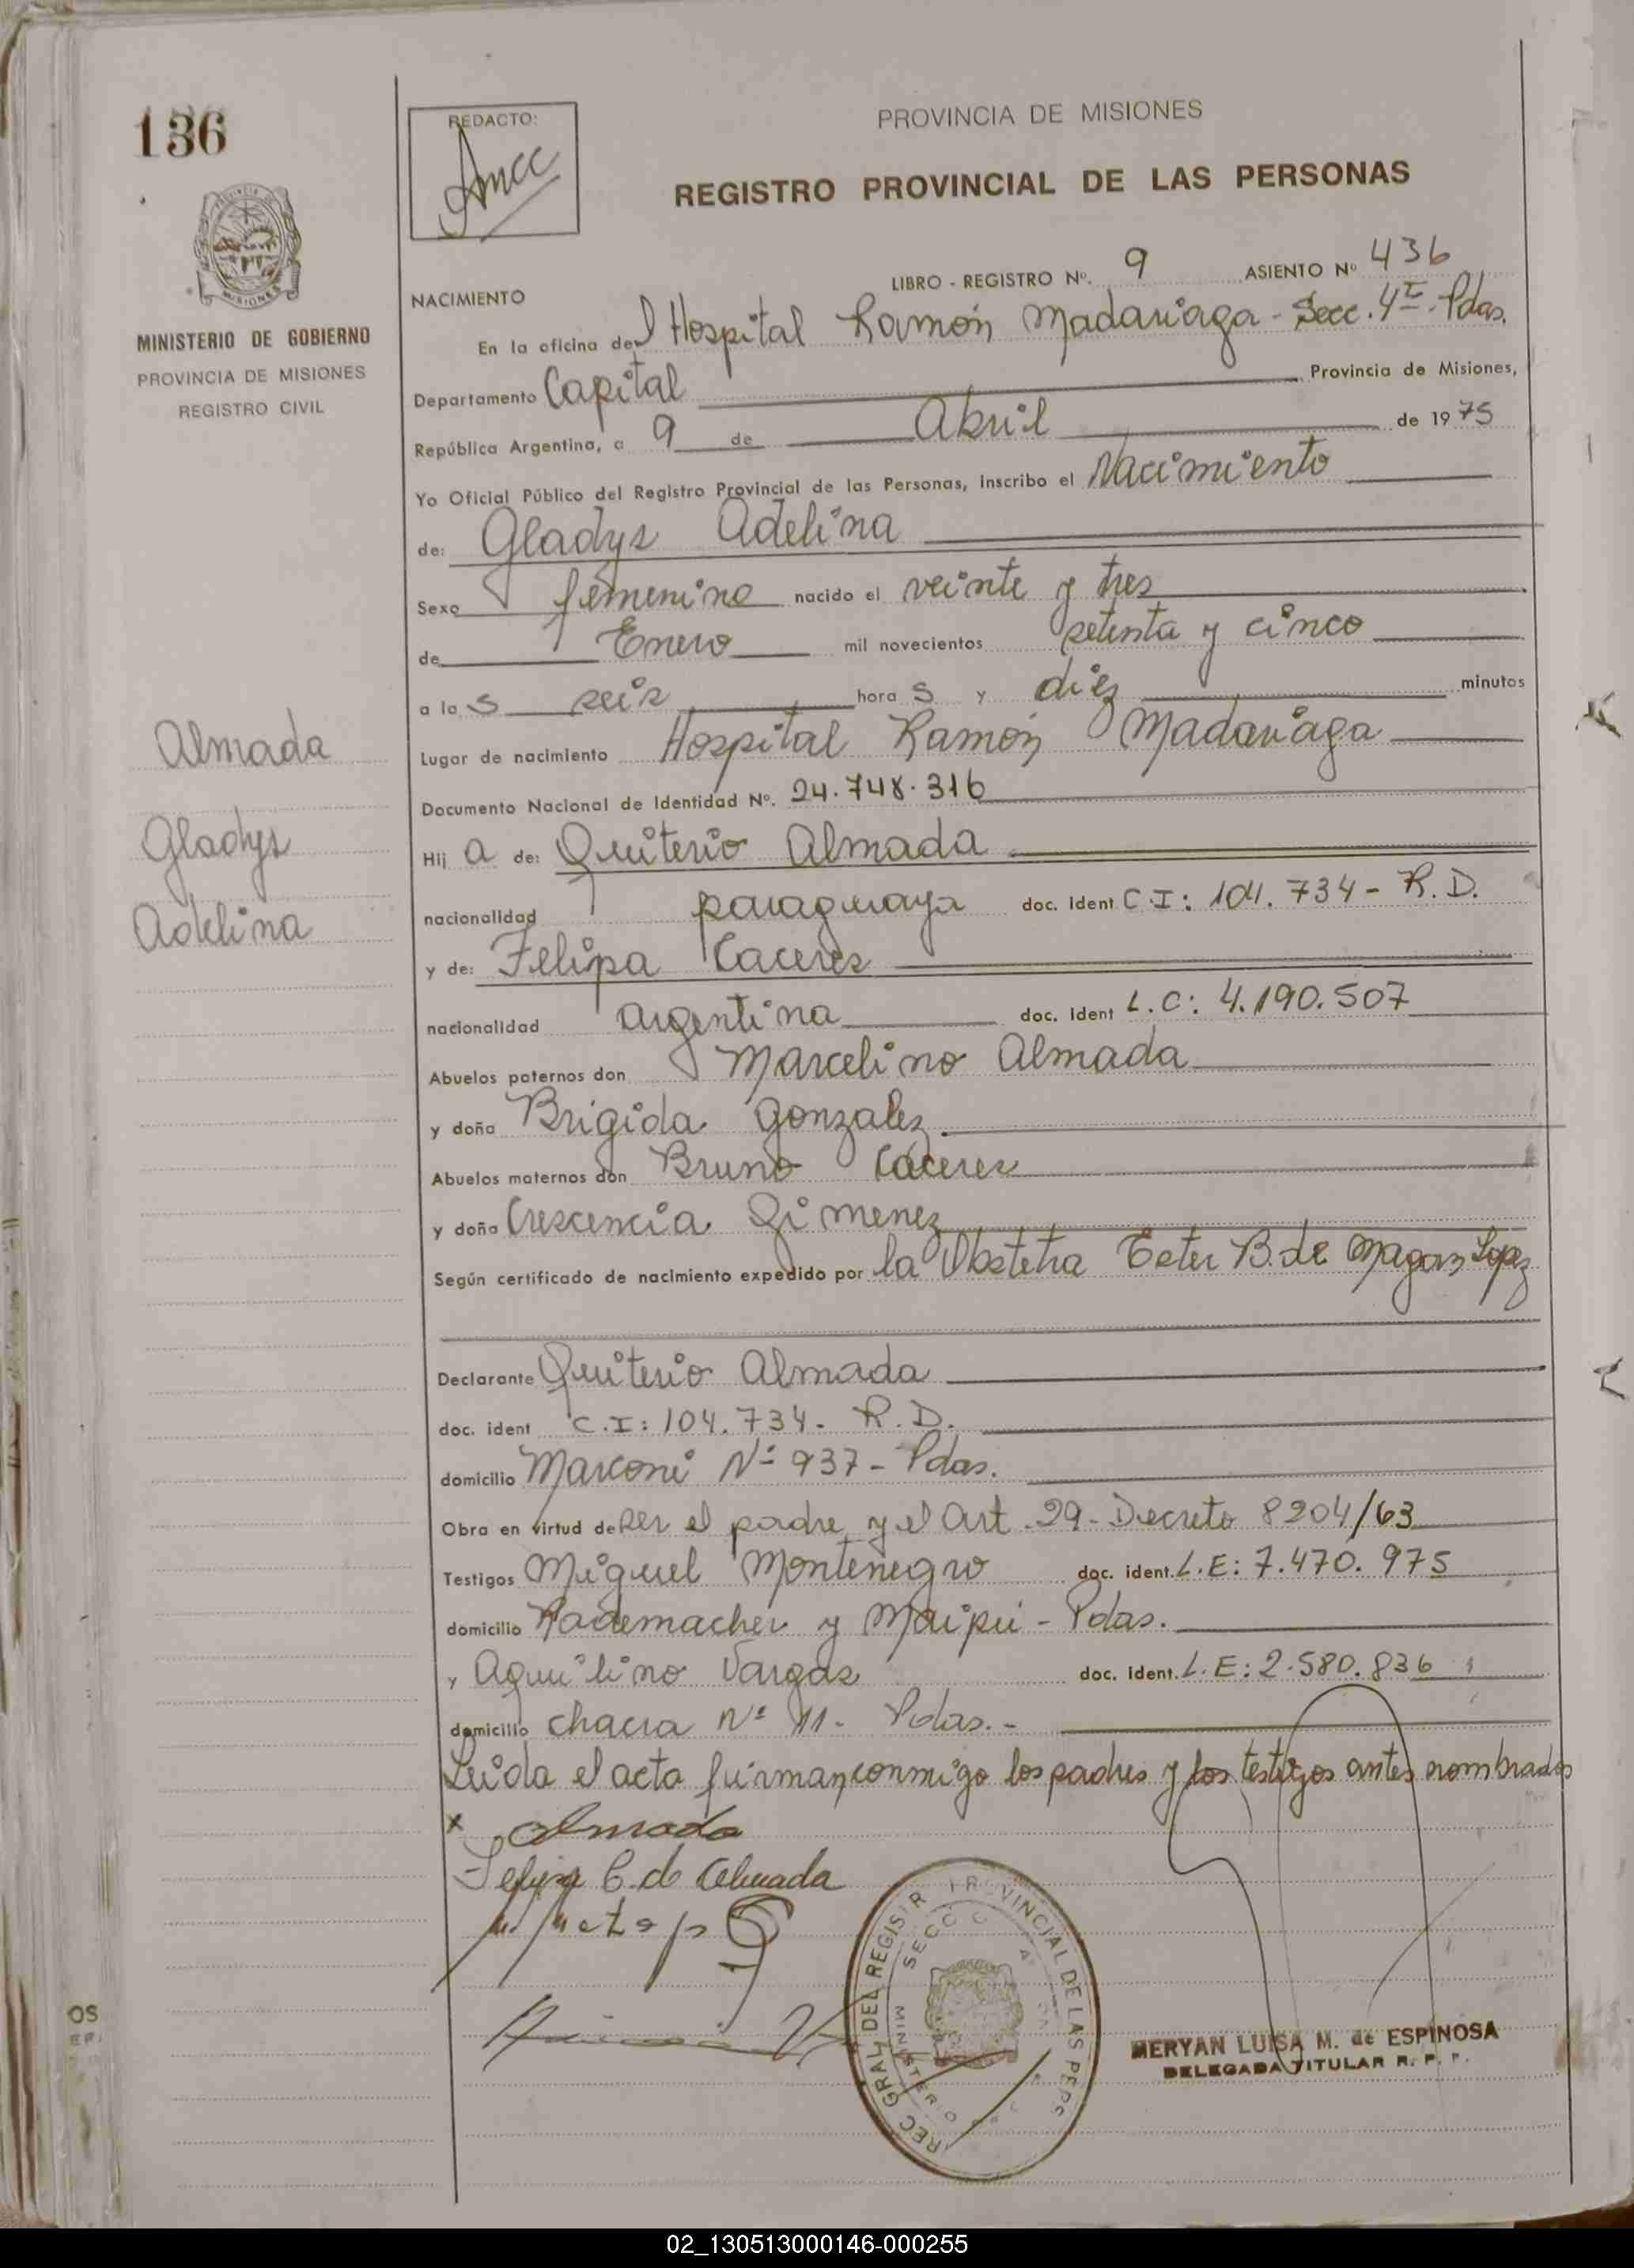 136
REDACTO:
PROVINCIA DE MISIONES
REGISTRO PROVINCIAL DE LAS PERSONAS
MINISTERIO DE GOBIERNO
PROVINCIA DE MISIONES
REGISTRO CIVIL
LIBRO - REGISTRO Nº. 9 ASIENTO Nº 436
NACIMIENTO
En la oficina del Hospital Ramón Madariaga - Secc. 4ª - Pdas.
Departamento Capital Provincia de Misiones,
República Argentina, a 9 de Abril de 1975
Yo Oficial Público del Registro Provincial de las Personas, inscribo el Nacimiento
de: Gladys Adelina
Sexo femenino nacido el veinte y tres
de Enero mil novecientos setenta y cinco
a las seis horas y diez minutos
Lugar de nacimiento Hospital Ramón Madariaga
Documento Nacional de Identidad Nº. 24.748.316
Almada
Gladys
Adelina
Hija de: Quiterio Almada
nacionalidad paraguaya doc. ident C.I: 104.734 - R.D.
y de: Felipa Caceres
nacionalidad argentina doc. ident L.C: 4.190.507
Abuelos paternos don Marcelino Almada
y doña Brigida Gonzalez
Abuelos maternos don Bruno Cáceres
y doña Crescencia Gimenez
Según certificado de nacimiento expedido por la Obstetra Ester B. de Magaz Lopez
Declarante Quiterio Almada
doc. ident C.I: 104.734 - R.D.
domicilio Marconi Nº 937 - Pdas.
Obra en virtud de ser el padre y el Art. 29 - Decreto 8204/63
Testigos Miguel Montenegro doc. ident. L.E: 7.470.975
domicilio Rademacher y Maipú - Pdas.
y Aquilino Vargas doc. ident. L.E: 2.580.836
domicilio chacra Nº 11 - Pdas. -
Leida el acta firman conmigo los padres y los testigos antes nombrados
x Almada
Felipa C. de Almada
MERYAN LUISA M. de ESPINOSA
DELEGADA TITULAR R. P. P.
02_130513000146-000255